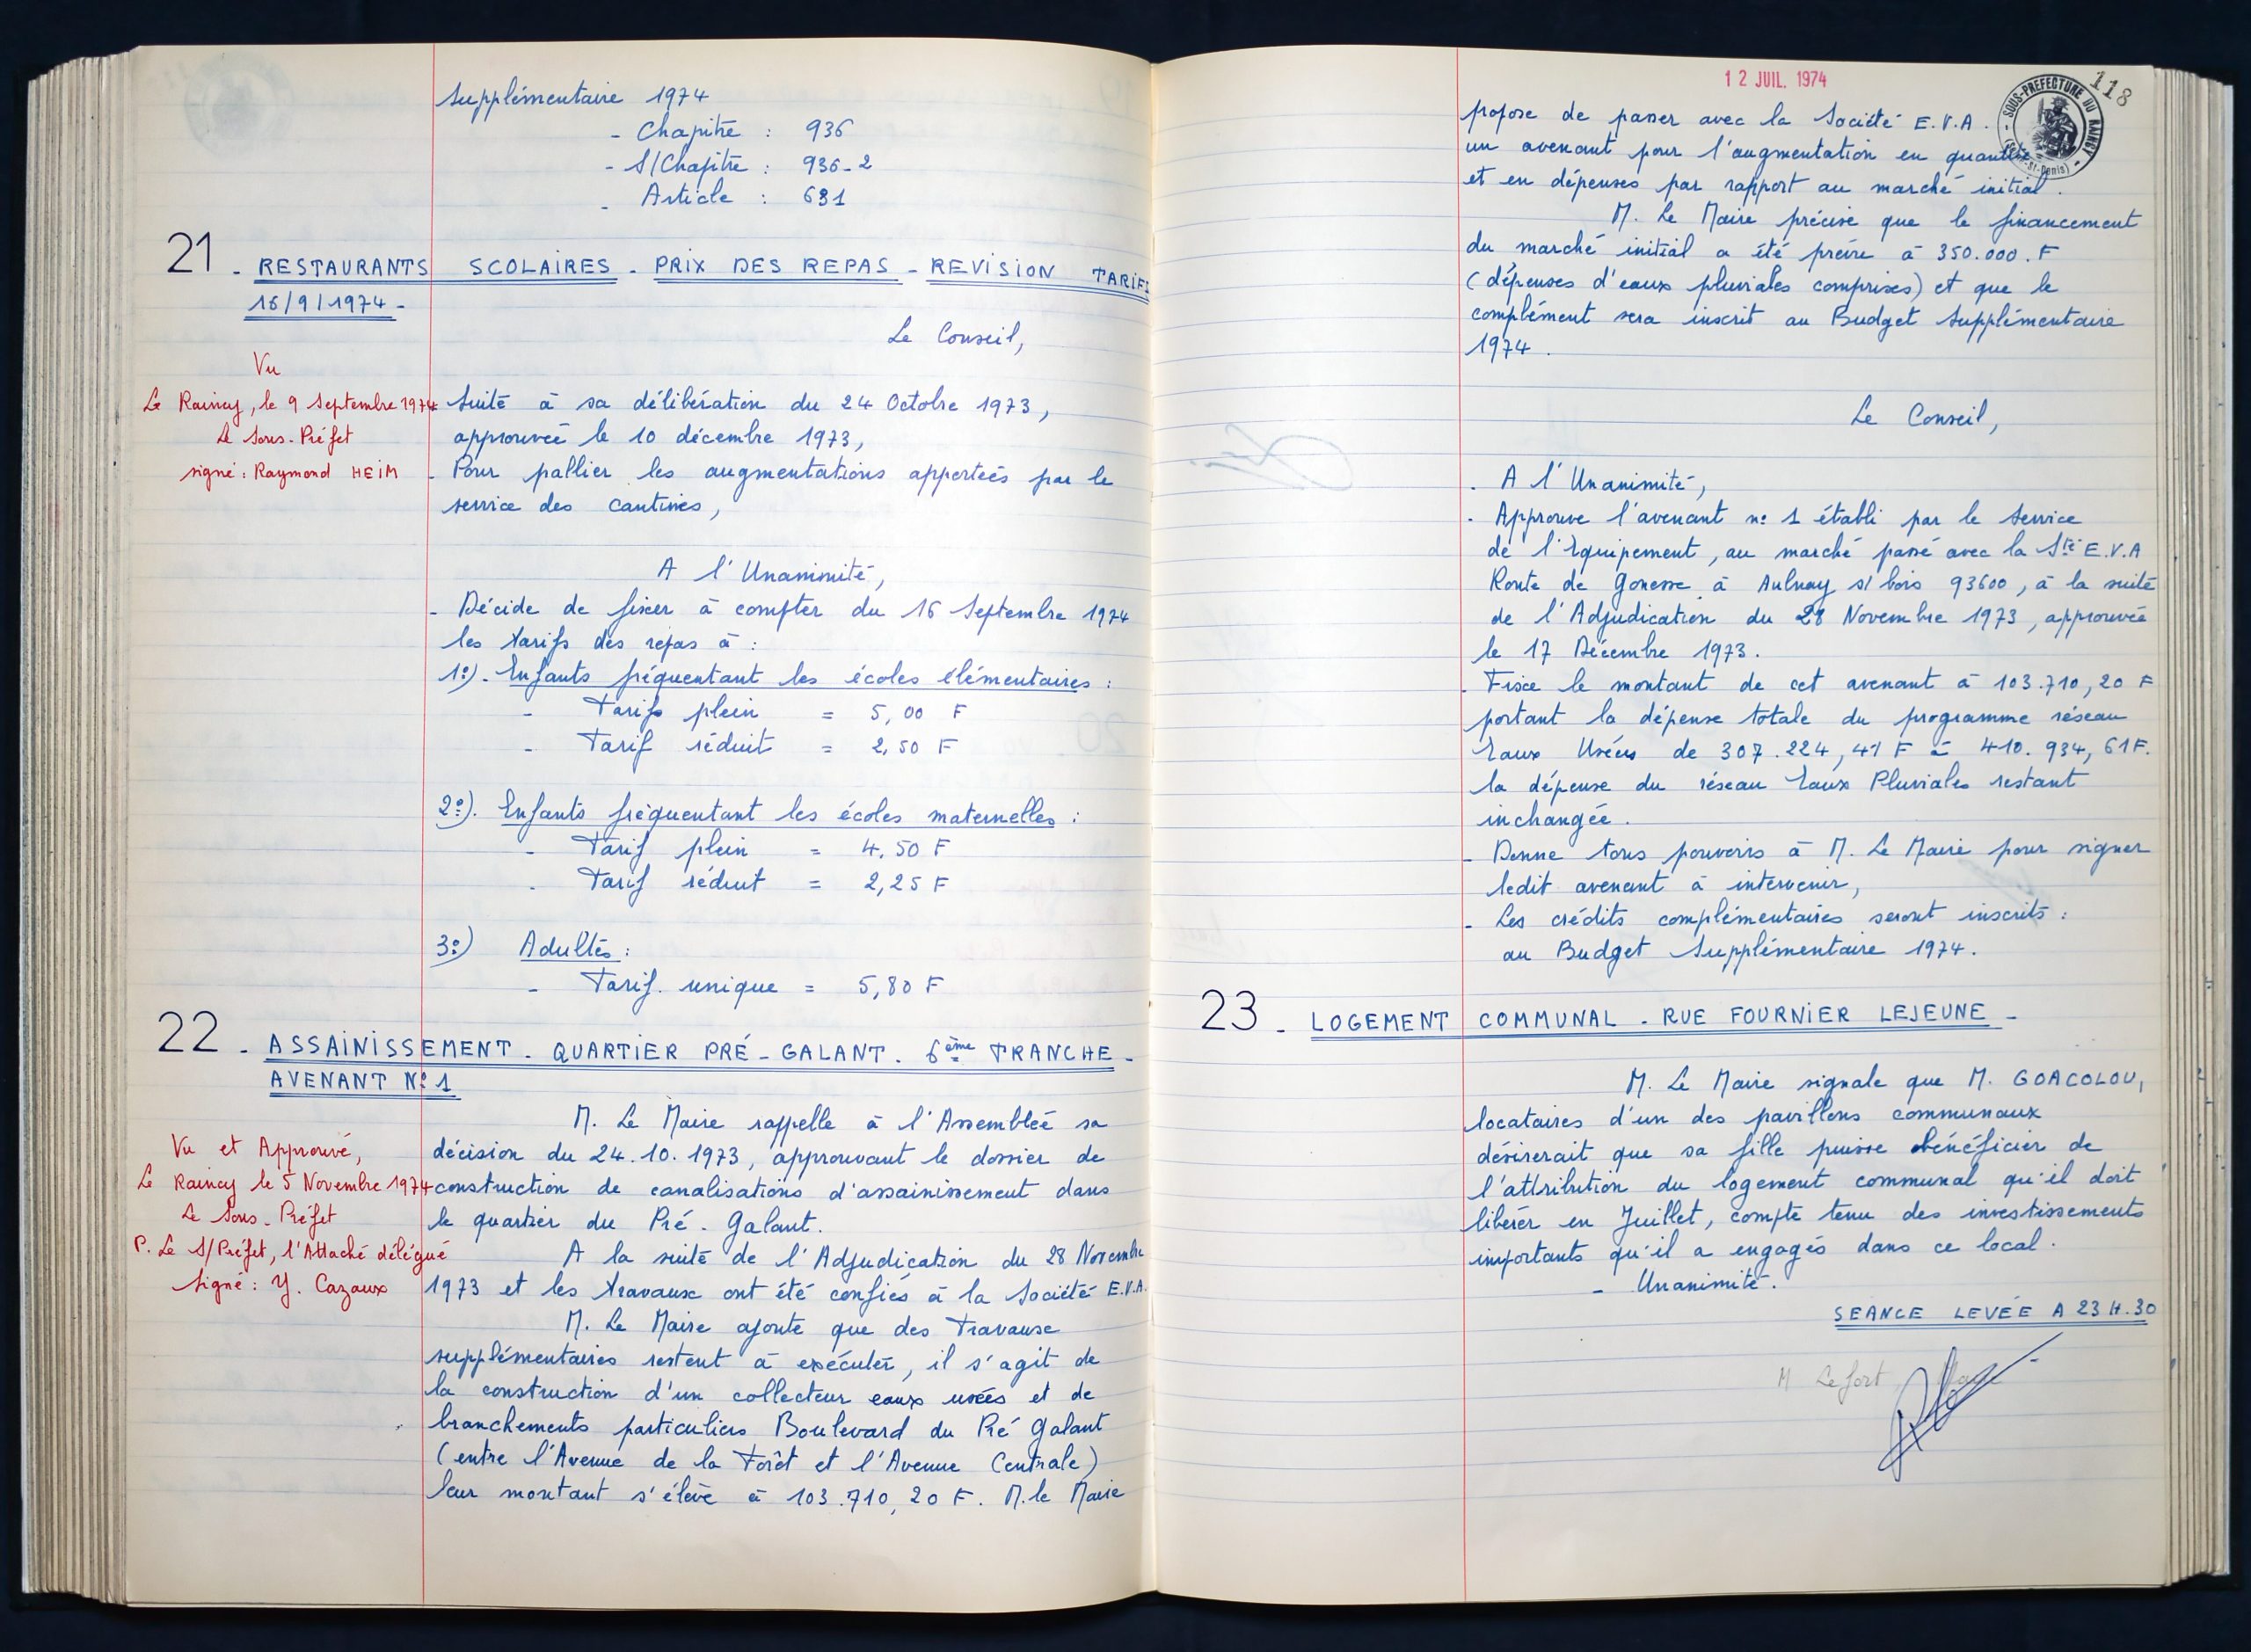 supplémentaire 1974
- Chapitre : 936
- S/Chapitre : 936-2
- Article : 631
21 - RESTAURANTS SCOLAIRES - PRIX DES REPAS - REVISION TARIFS
16/9/1974 -
Le Conseil,
Vu
Le Raincy, le 9 Septembre 1974
Le Sous-Préfet
signé : Raymond HEIM
Suite à sa délibération du 24 Octobre 1973,
approuvée le 10 décembre 1973,
- Pour pallier les augmentations apportées par le
service des cantines,
A l'Unanimité,
- Décide de fixer à compter du 16 Septembre 1974
les tarifs des repas à :
1°). Enfants fréquentant les écoles élémentaires :
- Tarifs plein = 5,00 F
- Tarif réduit = 2,50 F
2°). Enfants fréquentant les écoles maternelles :
- Tarif plein = 4,50 F
- Tarif réduit = 2,25 F
3°) Adultes :
- Tarif. unique = 5,80 F
22 - ASSAINISSEMENT - QUARTIER PRÉ-GALANT. 6ème TRANCHE -
AVENANT N°1
Vu et Approuvé,
Le Raincy le 5 Novembre 1974
Le Sous-Préfet
P. Le S/Préfet, l'Attaché délégué
Signé : Y. Cazaux
M. Le Maire rappelle à l'Assemblée sa
décision du 24.10.1973, approuvant le dossier de
construction de canalisations d'assainissement dans
le quartier du Pré-Galant.
A la suite de l'Adjudication du 28 Novembre
1973 et les travaux ont été confiés à la Société E.V.A.
M. Le Maire ajoute que des Travaux
supplémentaires restent à exécuter, il s'agit de
la construction d'un collecteur eaux usées et de
branchements particuliers Boulevard du Pré Galant
(entre l'Avenue de la Forêt et l'Avenue Centrale)
leur montant s'élève à 103.710,20 F. M. le Maire
12 JUIL. 1974
118
SOUS-PREFECTURE DU RAINCY
St-Denis)
propose de passer avec la Société E.V.A.
un avenant pour l'augmentation en quantité
et en dépenses par rapport au marché initial.
M. Le Maire précise que le financement
du marché initial a été prévu à 350.000.F
(dépenses d'eaux pluviales comprises) et que le
complément sera inscrit au Budget Supplémentaire
1974.
Le Conseil,
- A l'Unanimité,
- Approuve l'avenant n° 1 établi par le Service
de l'Equipement, au marché passé avec la Sté E.V.A
Route de Gonesse à Aulnay s/bois 93600, à la suite
de l'Adjudication du 28 Novembre 1973, approuvée
le 17 Décembre 1973.
- Fixe le montant de cet avenant à 103.710,20 F
portant la dépense totale du programme réseau
Eaux Usées de 307.224,41 F à 410.934,61F.
la dépense du réseau Eaux Pluviales restant
inchangée.
- Donne tous pouvoirs à M. Le Maire pour signer
ledit avenant à intervenir,
- Les crédits complémentaires seront inscrits :
au Budget Supplémentaire 1974.
23 - LOGEMENT COMMUNAL - RUE FOURNIER LEJEUNE -
M. Le Maire signale que M. GOACOLOU,
locataires d'un des pavillons communaux
désirerait que sa fille puisse bénéficier de
l'attribution du logement communal qu'il doit
libérer en Juillet, compte tenu des investissements
importants qu'il a engagés dans ce local.
- Unanimité.
SEANCE LEVÉE A 23 H.30
M Lefort